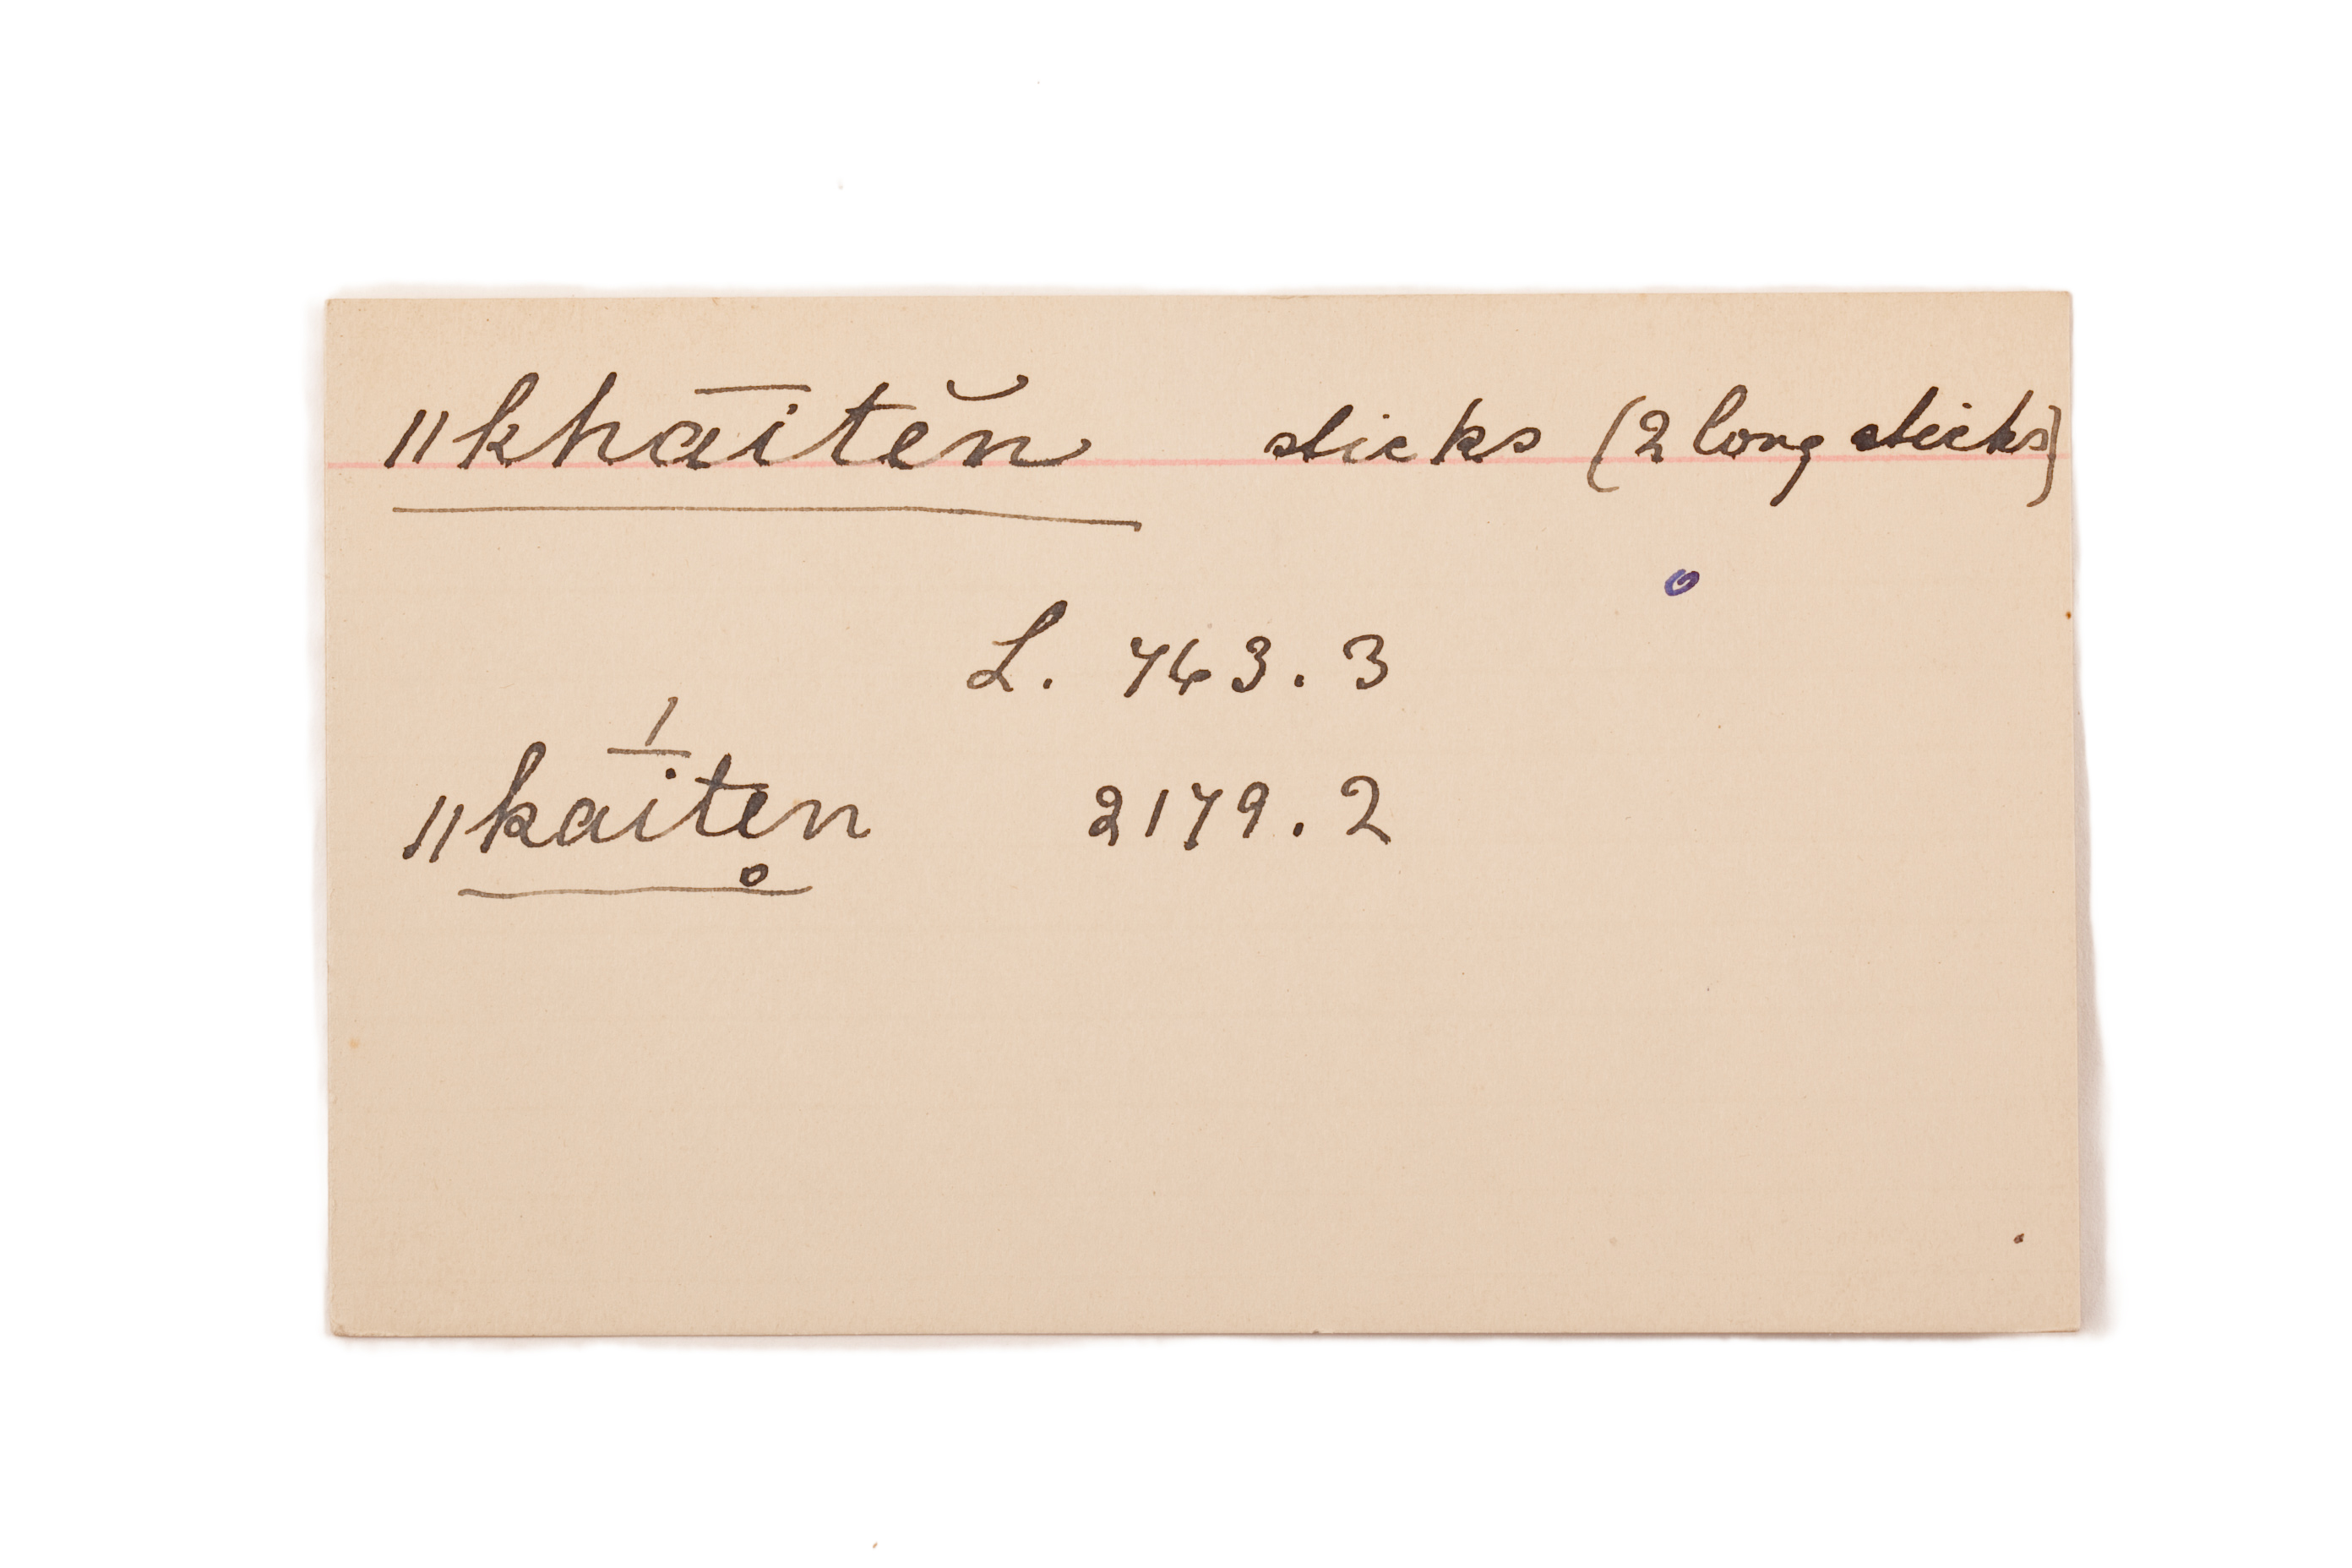 ǁkhāitĕn sticks (2 long sticks)
o
L. 763.3
ǁkā́ite̥n 2179.2